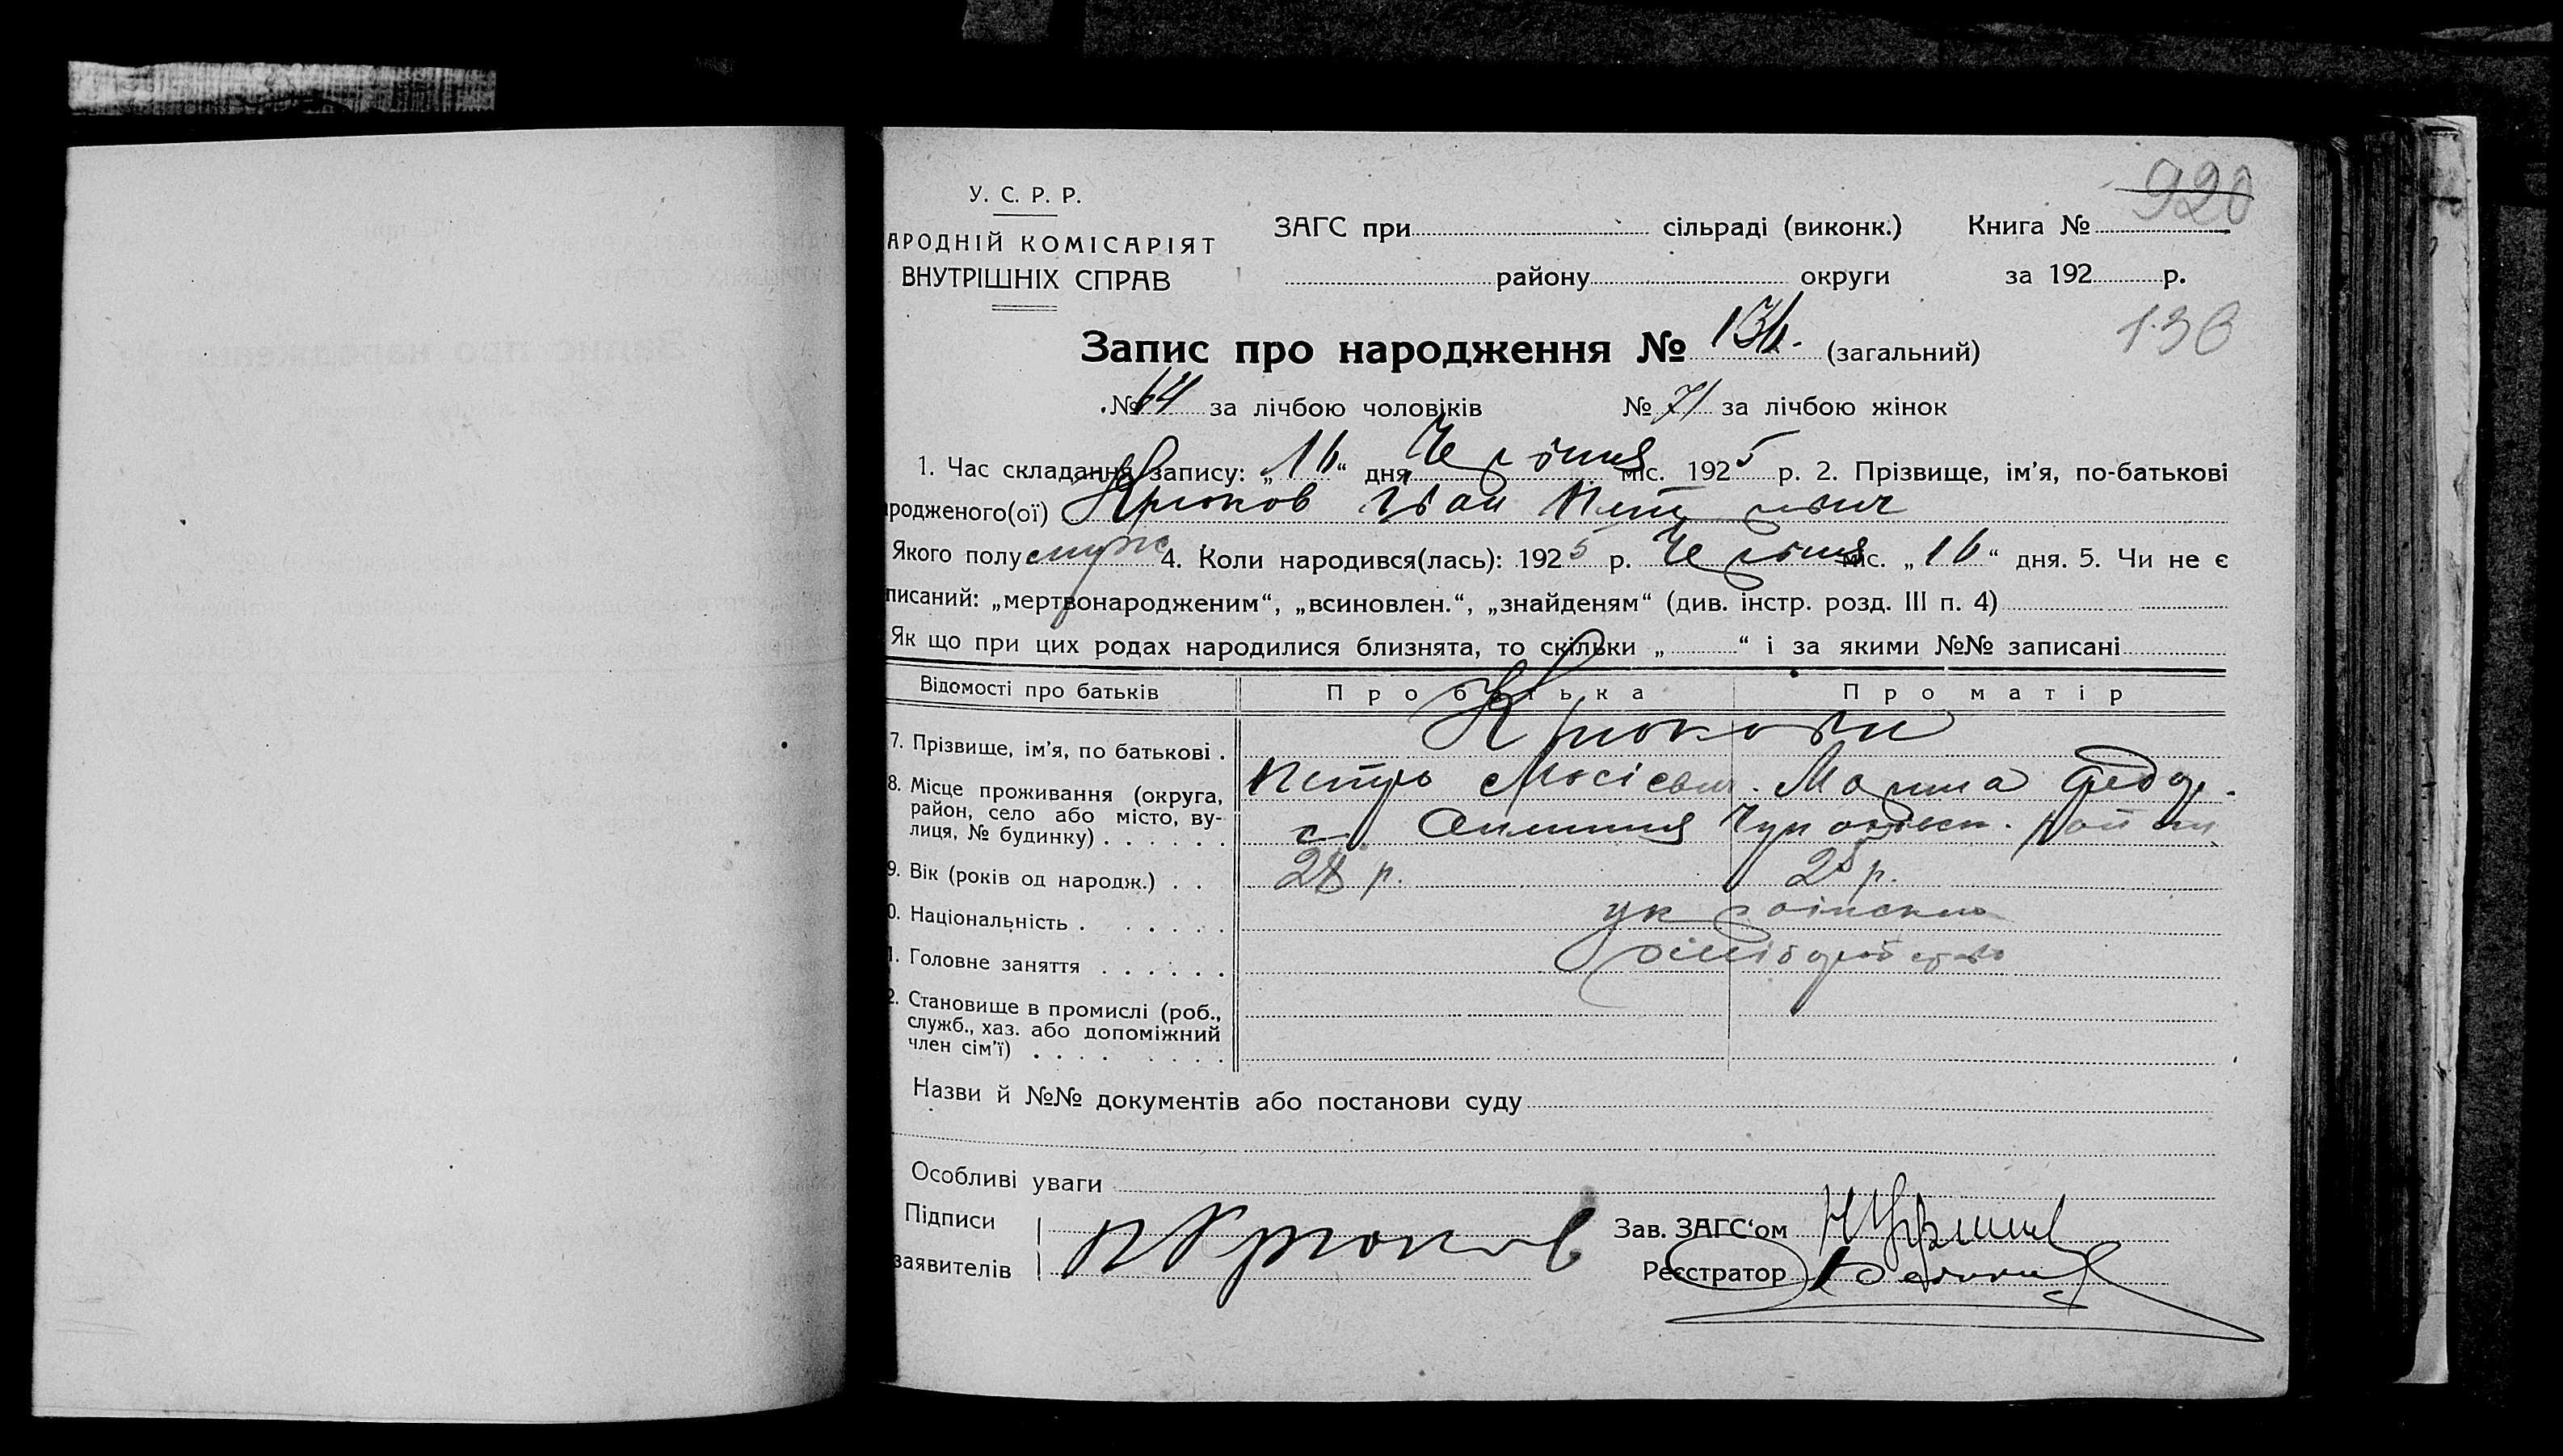 920
У. С. Р. Р.
АРОДНІЙ КОМІСАРІЯТ
ВНУТРІШНІХ СПРАВ
ЗАГС при сільраді (виконк.) Книга №
району округи за 192 р.
136
Запис про народження № 136. (загальний)
№ 64 за лічбою чоловіків № 71 за лічбою жінок
1. Час складання запису: „16“ дня Червня міс. 1925 р. 2. Прізвище, ім’я, по-батькові
родженого(ої) Крюков Іван Петрович
Якого полу муж 4. Коли народився(лась): 1925 р. Червня міс. „16“ дня. 5. Чи не є
писаний: „мертвонародженим“, „всиновлен.“, „знайденям“ (див. інстр. розд. III п. 4)
Як що при цих родах народилися близнята, то скільки „ “ і за якими №№ записані
Відомості про батьків Про батька Про матір
7. Прізвище, ім’я, по батькові . Крюкови
Петро Мосієвич. Марина Федор.
8. Місце проживання (округа,
район, село або місто, ву-
лиця, № будинку) . . . . . . с.
9. Вік (років од народж.) . . 28 р. 28 р.
0. Національність . . . . . . українська
1. Головне заняття . . . . . . хліборобство
2. Становище в промислі (роб.,
служб., хаз. або допоміжний
член сім’ї) . . . . . . . .
Назви й №№ документів або постанови суду
Особливі уваги
Підписи
заявителів П Крюков
Зав. ЗАГС‘ом
Реєстратор